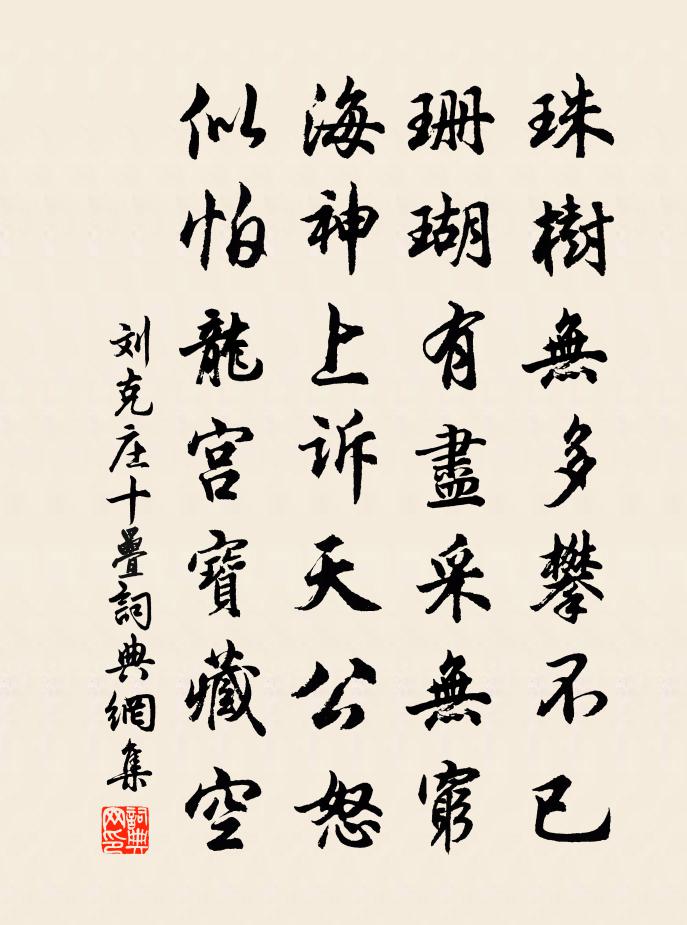 珠樹無多攀不已
珊瑚有盡采無窮
海神上訴天公怒
似怕龍宮寶藏空
刘克庄十疊詞典網集
詞典网印